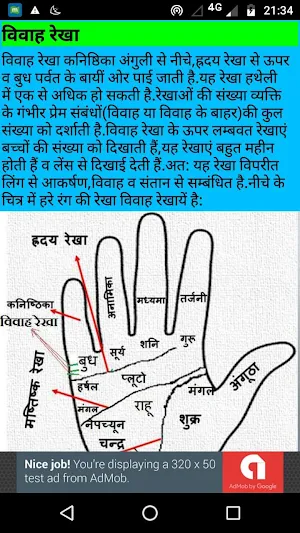 4G 21:34
विवाह रेखा
विवाह रेखा कनिष्ठिका अंगुली से नीचे,ह्रदय रेखा से ऊपर
व बुध पर्वत के बायीं ओर पाई जाती है.यह रेखा हथेली
में एक से अधिक हो सकती है.रेखाओं की संख्या व्यक्ति
के गंभीर प्रेम संबंधों(विवाह या विवाह के बाहर)की कुल
संख्या को दर्शाती है.विवाह रेखा के ऊपर लम्बवत रेखाएं
बच्चों की संख्या को दिखाती हैं,यह रेखाएं बहुत महीन
होती हैं व लेंस से दिखाई देती हैं.अत: यह रेखा विपरीत
लिंग से आकर्षण,विवाह व संतान से सम्बंधित है.नीचे के
चित्र में हरे रंग की रेखा विवाह रेखायें है:
ह्रदय रेखा
अनामिका
मध्यमा
तर्जनी
कनिष्ठिका
विवाह रेखा
बुध
सूर्य
शनि
गुरू
मष्तिष्क रेखा
हर्षल
प्लूटो
मंगल
अंगूठा
मंगल
राहू
शुक्र
नेपच्यून
चन्द्र
Nice job! You're displaying a 320 x 50
test ad from AdMob.
AdMob by Google